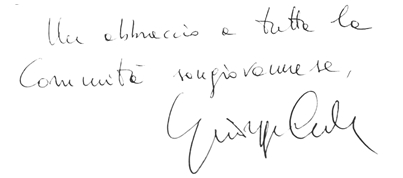 Un abbraccio a tutta la
Comunità sangiovannese,
Giuseppe